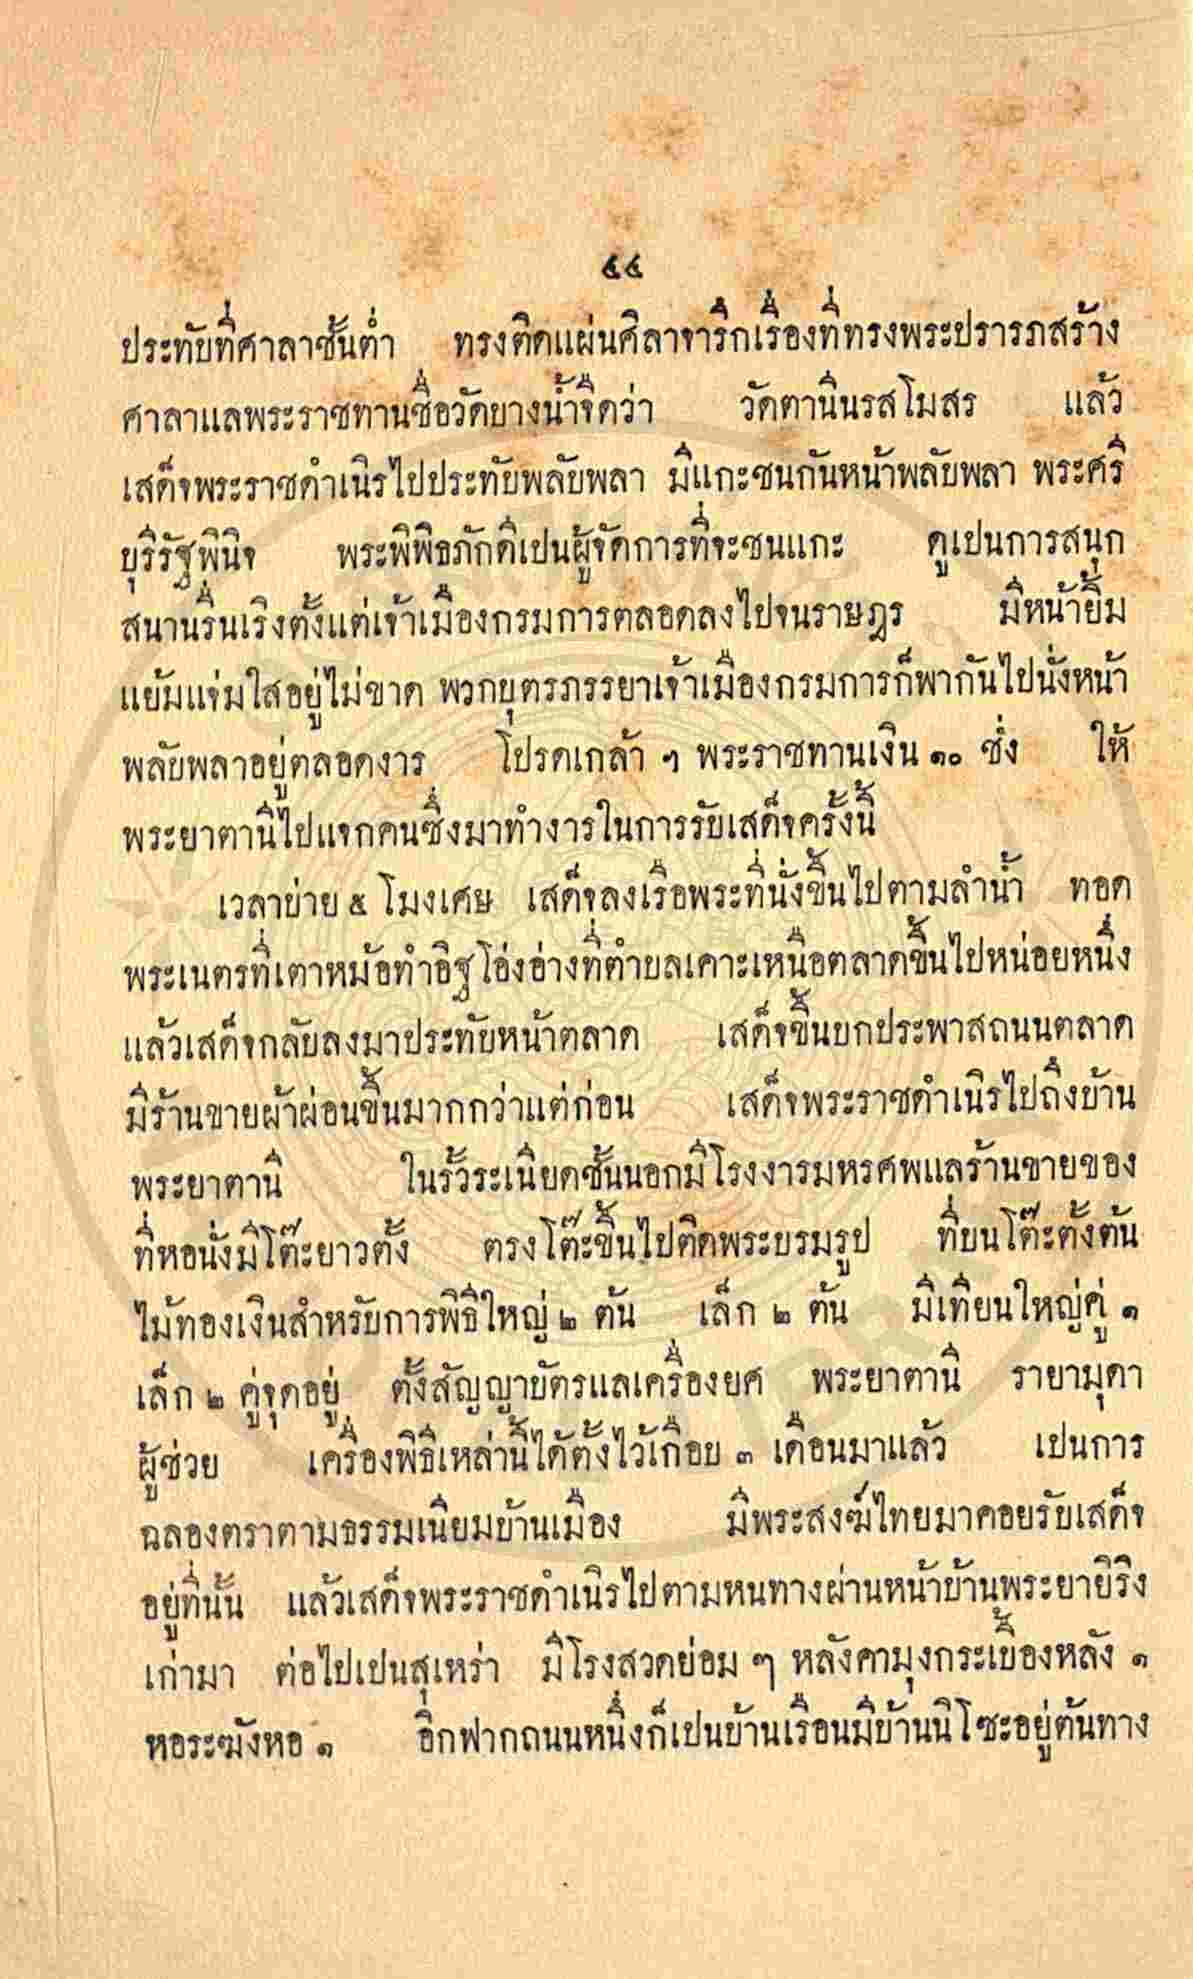 ๔๔
ประทับที่ศาลาชั้นต่ำ ทรงติดแผ่นศิลาจารึกเรื่องที่ทรงพระปรารภสร้าง
ศาลาแลพระราชทานชื่อวัดบางน้ำจืดว่า วัดตานีนรสโมสร แล้ว
เสด็จพระราชดำเนิรไปประทับพลับพลา มีแกะชนกันหน้าพลับพลา พระศรี
บุรีรัฐพินิจ พระพิพิธภักดีเปนผู้จัดการที่จะชนแกะ ดูเปนการสนุก
สนานรื่นเริงตั้งแต่เจ้าเมืองกรมการตลอดลงไปจนราษฎร มีหน้ายิ้ม
แย้มแจ่มใสอยู่ไม่ขาด พวกบุตรภรรยาเจ้าเมืองกรมการก็พากันไปนั่งหน้า
พลับพลาอยู่ตลอดงาร โปรดเกล้า ฯ พระราชทานเงิน ๑๐ ชั่ง ให้
พระยาตานีไปแจกคนซึ่งมาทำงารในการรับเสด็จครั้งนี้
เวลาบ่าย ๕ โมงเศษ เสด็จลงเรือพระที่นั่งขึ้นไปตามลำน้ำ ทอด
พระเนตรที่เตาหม้อทำอิฐโอ่งอ่างที่ตำบลเคาะเหนือตลาดขึ้นไปหน่อยหนึ่ง
แล้วเสด็จกลับลงมาประทับหน้าตลาด เสด็จขึ้นบกประพาสถนนตลาด
มีร้านขายผ้าผ่อนขึ้นมากกว่าแต่ก่อน เสด็จพระราชดำเนิรไปถึงบ้าน
พระยาตานี ในรั้วระเนียดชั้นนอกมีโรงงารมหรศพแลร้านขายของ
ที่หอนั่งมีโต๊ะยาวตั้ง ตรงโต๊ะขึ้นไปติดพระบรมรูป ที่บนโต๊ะตั้งต้น
ไม้ทองเงินสำหรับการพิธีใหญ่ ๒ ต้น เล็ก ๒ ต้น มีเทียนใหญ่คู่ ๑
เล็ก ๒ คู่จุดอยู่ ตั้งสัญญาบัตรแลเครื่องยศ พระยาตานี รายามุดา
ผู้ช่วย เครื่องพิธีเหล่านี้ได้ตั้งไว้เกือบ ๓ เดือนมาแล้ว เปนการ
ฉลองตราตามธรรมเนียมบ้านเมือง มีพระสงฆ์ไทยมาคอยรับเสด็จ
อยู่ที่นั้น แล้วเสด็จพระราชดำเนิรไปตามหนทางผ่านหน้าบ้านพระยายิริง
เก่ามา ต่อไปเปนสุเหร่า มีโรงสวดย่อม ๆ หลังคามุงกระเบื้องหลัง ๑
หอระฆังหอ ๑ อีกฟากถนนหนึ่งก็เปนบ้านเรือนมีบ้านนิโซะอยู่ต้นทาง